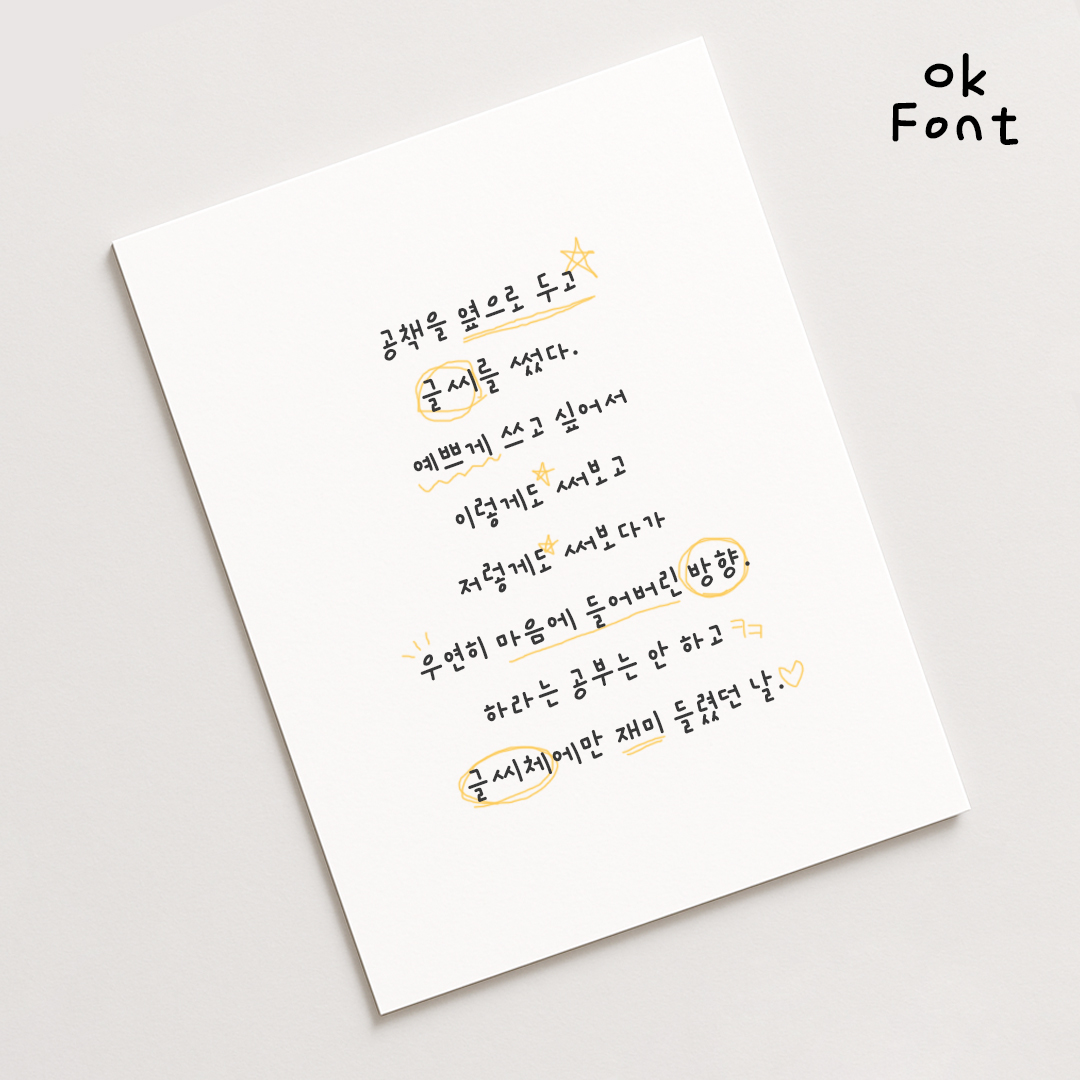 ok
Font
공책을 옆으로 두고
글씨를 썼다.
예쁘게 쓰고 싶어서
이렇게도 써보고
저렇게도 써보다가
우연히 마음에 들어버린 방향.
하라는 공부는 안 하고 ㅋㅋ
글씨체에만 재미 들렸던 날.